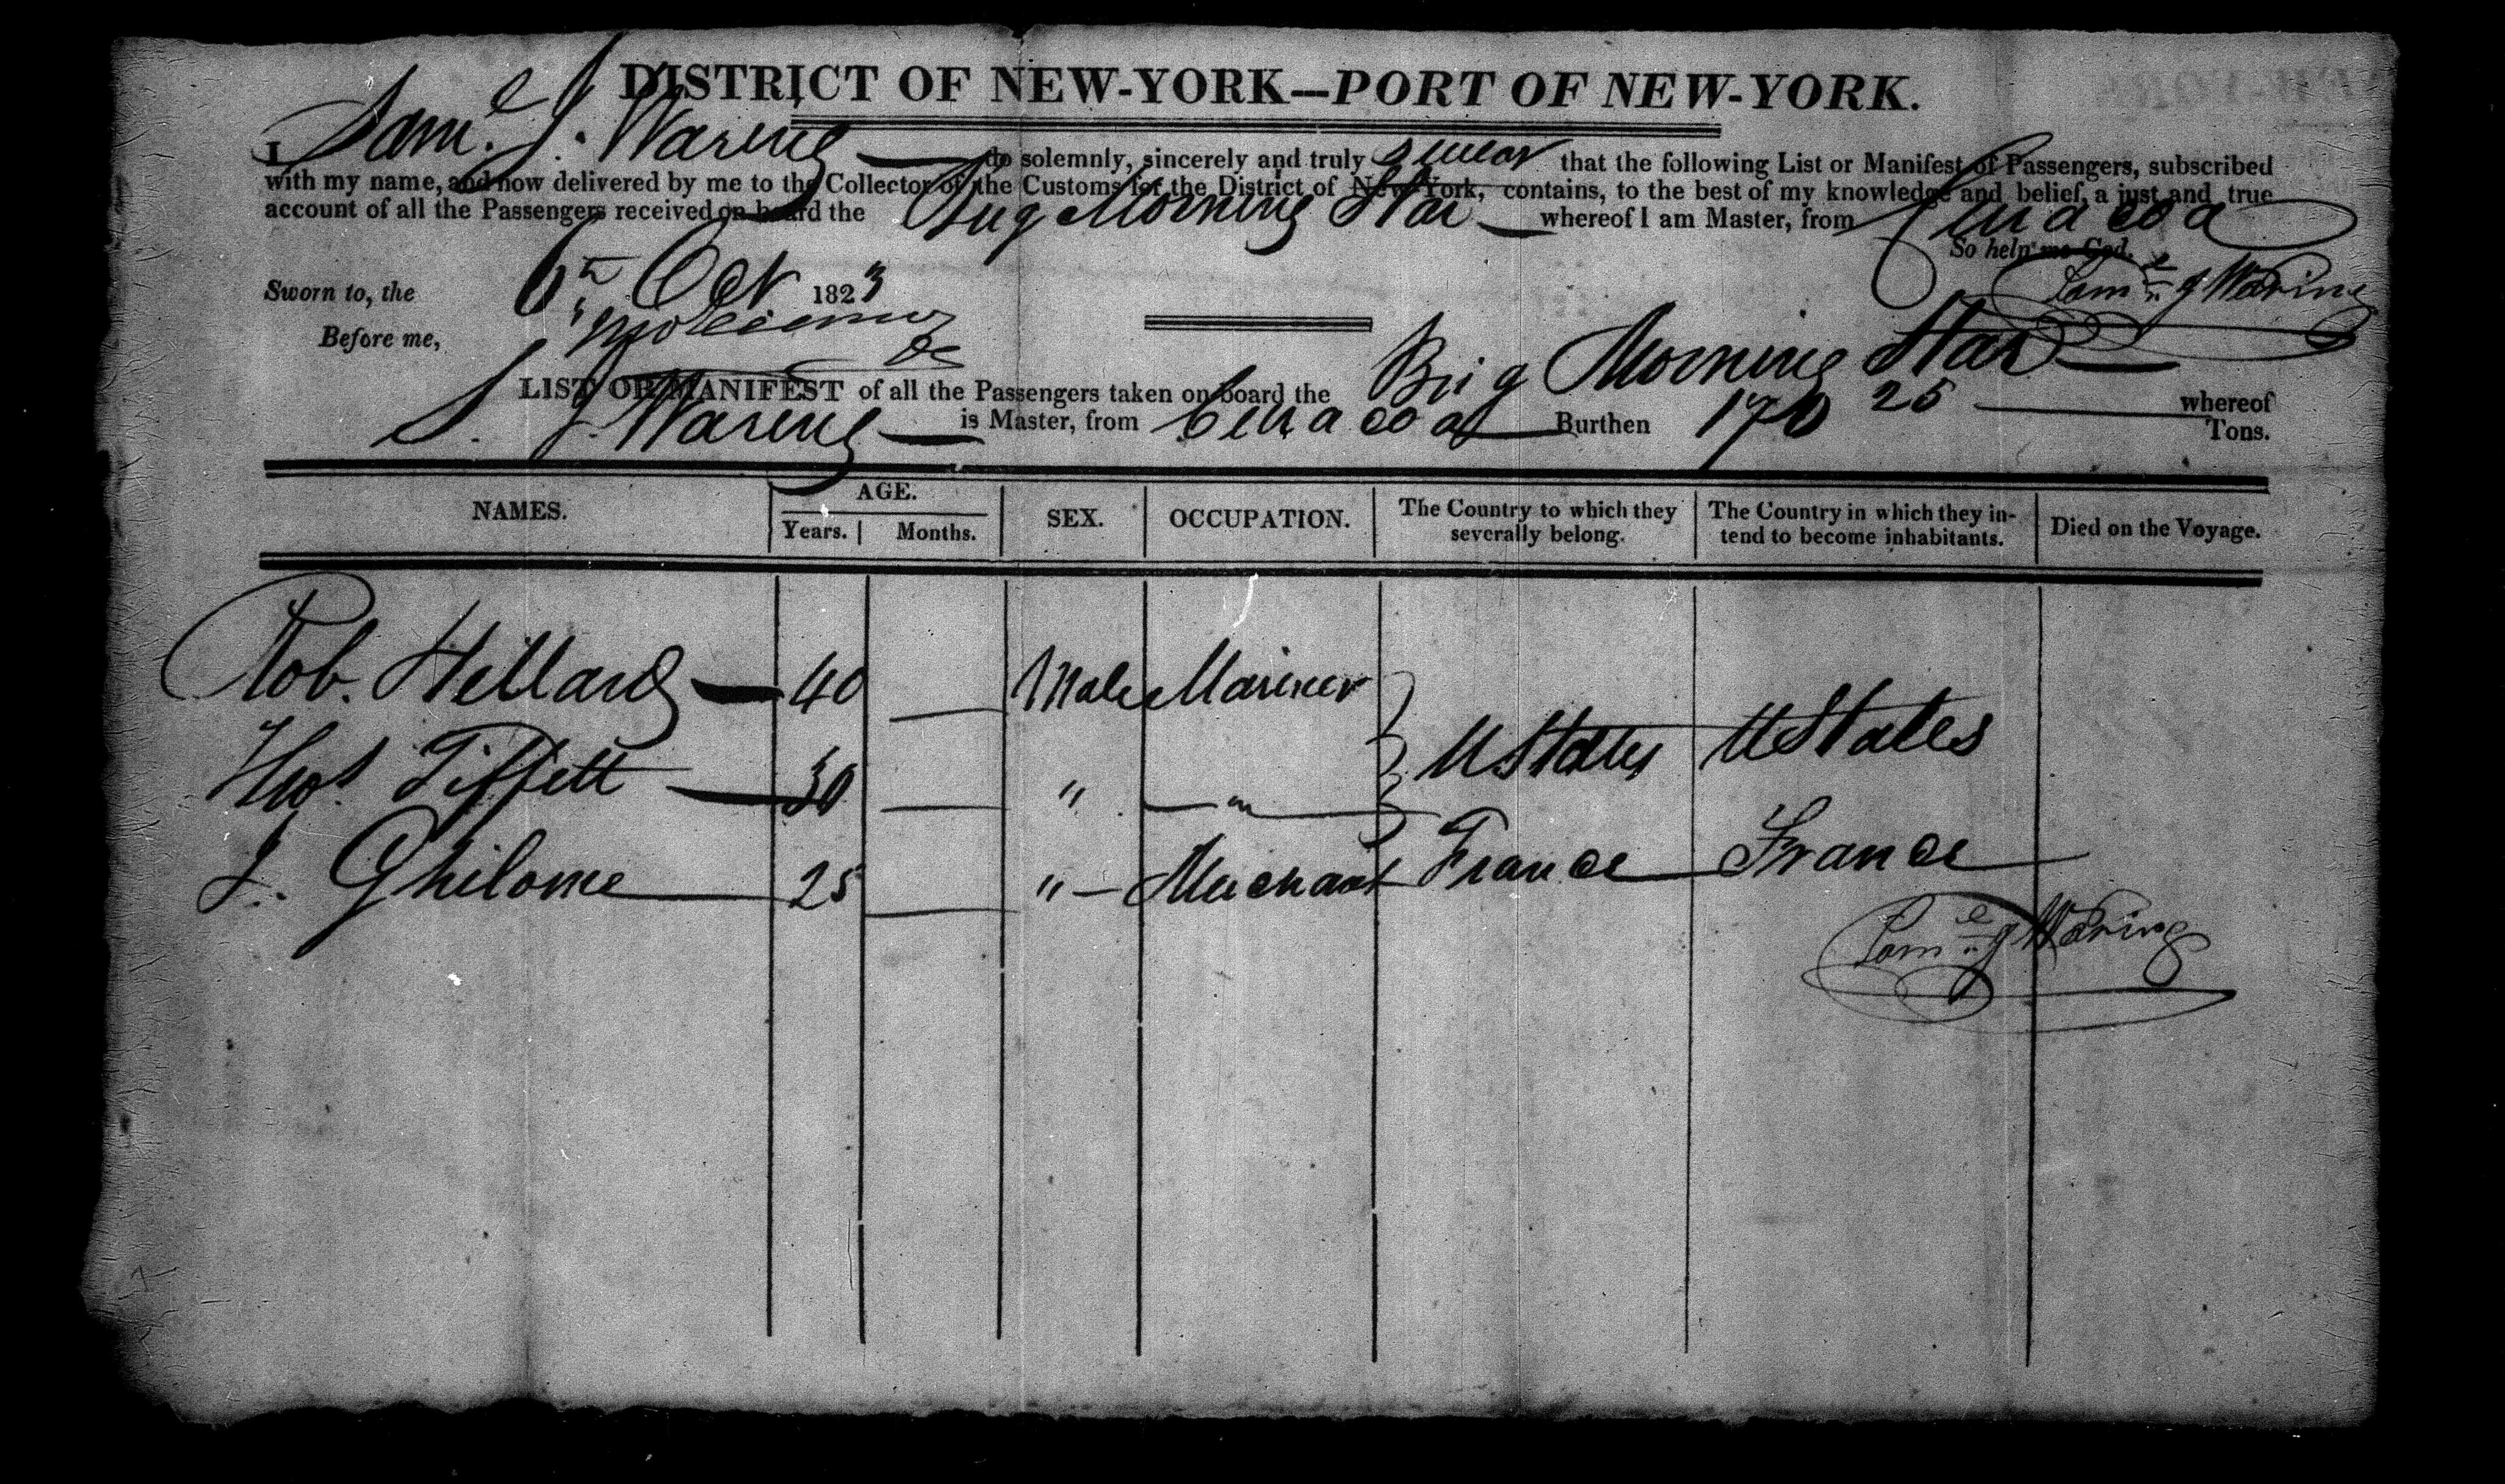 DISTRICT OF NEW-YORK—PORT OF NEW-YORK.
I Saml. J. Waring do solemnly, sincerely and truly swear that the following List or Manifest of Passengers, subscribed
with my name, and now delivered by me to the Collector of the Customs for the District of New-York, contains, to the best of my knowledge and belief, a just and true
account of all the Passengers received on board the Brig Morning Star whereof I am Master, from Curacoa
So help me God.
Sworn to, the 6th Oct 1823
Saml. J Waring
Before me,
LIST OR MANIFEST of all the Passengers taken on board the Brig Morning Star whereof
S. J. Waring is Master, from Curacoa Burthen 170 25 Tons.
NAMES. AGE. SEX. OCCUPATION. The Country to which they severally belong. The Country in which they intend to become inhabitants. Died on the Voyage.
Years. Months.
Rob. Hillard 40 Male Mariner
U States U States
Thos. Tiffett 30 " "
J. Ghilome 25 " Merchant France France
Saml. J Waring